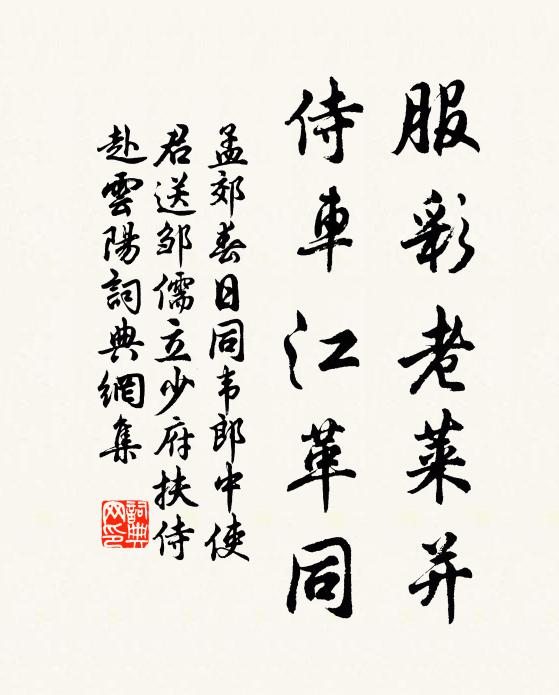 服彩老莱并
侍車江革同
孟郊春日同韦郎中使
君送邹儒立少府扶侍
赴雲陽詞典網集
詞典
网印